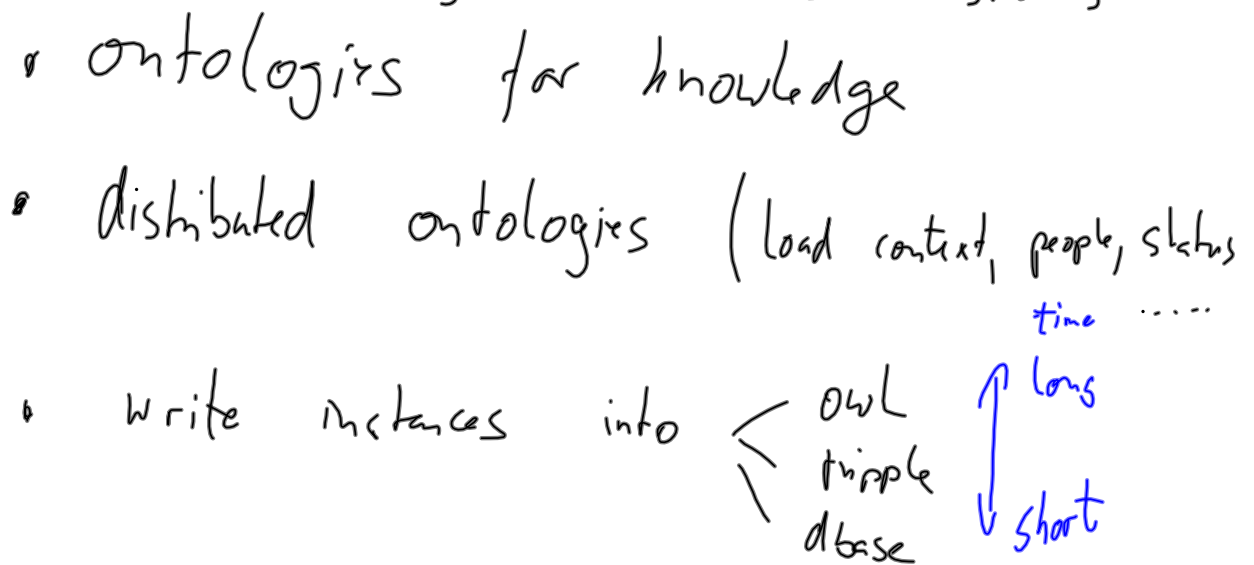 • ontologies for knowledge
• distributed ontologies (load context, people, status
time .....
• write instances into < owl
long
tripple
dbase
short